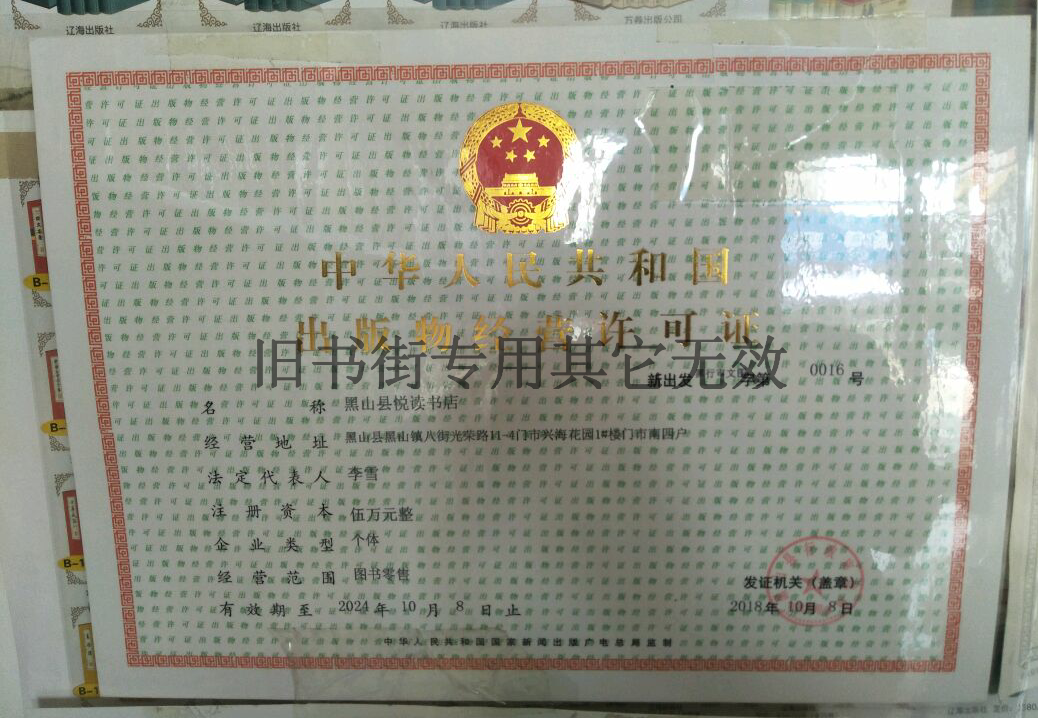 辽海出版社
辽海出版社
万卷出版公司
中华人民共和国
出版物经营许可证
旧书街专用其它无效
新出发 字第 0016 号
名称 黑山县悦读书店
经营地址 黑山县黑山镇八街光荣路11-4门市兴海花园1#楼门市南四户
法定代表人 李雪
注册资本 伍万元整
企业类型 个体
经营范围 图书零售
有效期至 2024 年 10 月 8 日止
发证机关（盖章）
2018年 10月 8日
中华人民共和国国家新闻出版广电总局监制
B-
B-
B-1
B-1
辽海出版社